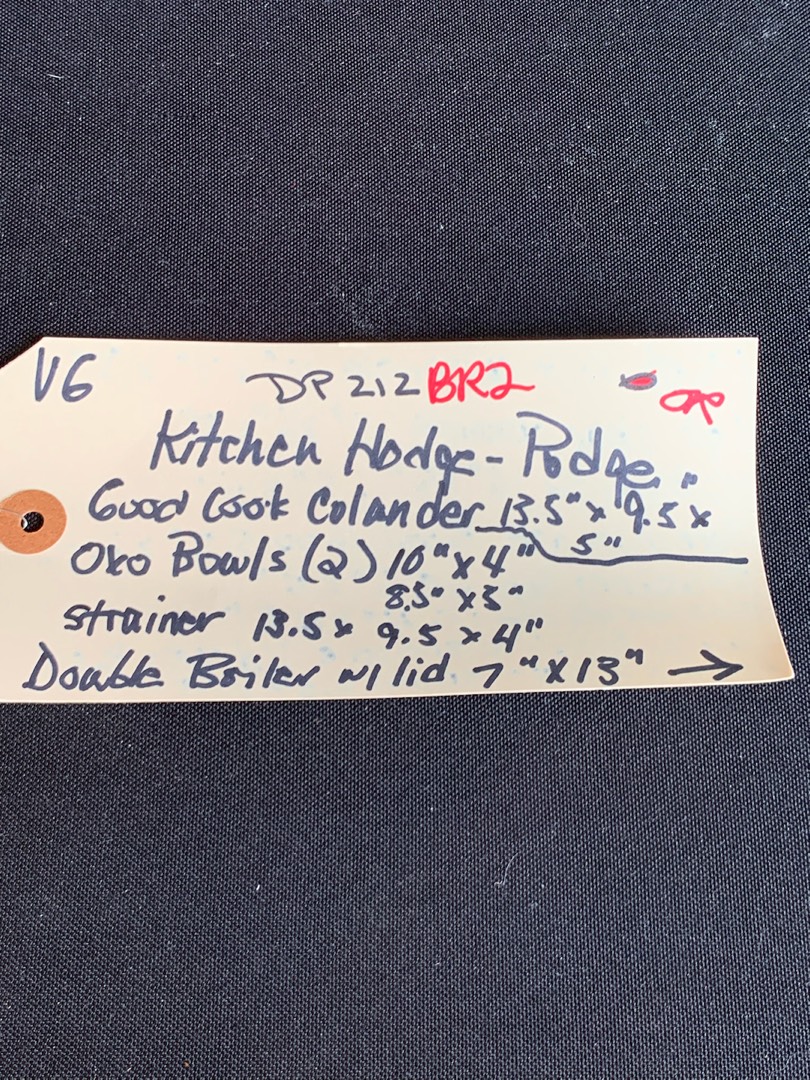 V6 DP 212 BR2
Kitchen Hodge-Podge
Good Cook Colander 13.5" x 9.5" x
5"
Oxo Bowls (2) 10" x 4"
8.5" x 3"
strainer 13.5 x 9.5 x 4"
Double Boiler w/ lid 7" x 13" →